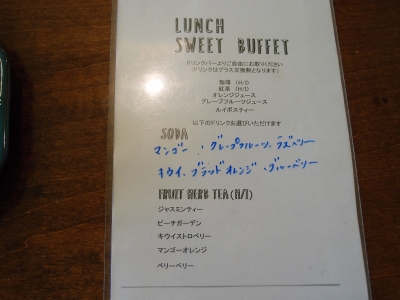 LUNCH
SWEET BUFFET
ドリンクバーよりご自由にお取りください
(ドリンクはグラス交換制となります)
珈琲 (H/I)
紅茶 (H/I)
オレンジジュース
グレープフルーツジュース
ルイボスティー
以下のドリンクお選びいただけます
SODA
マンゴー、グレープフルーツ、ラズベリー
キウイ、ブラッドオレンジ、ブルーベリー
FRUIT HERB TEA(H/I)
ジャスミンティー
ピーチガーデン
キウイストロベリー
マンゴーオレンジ
ベリーベリー